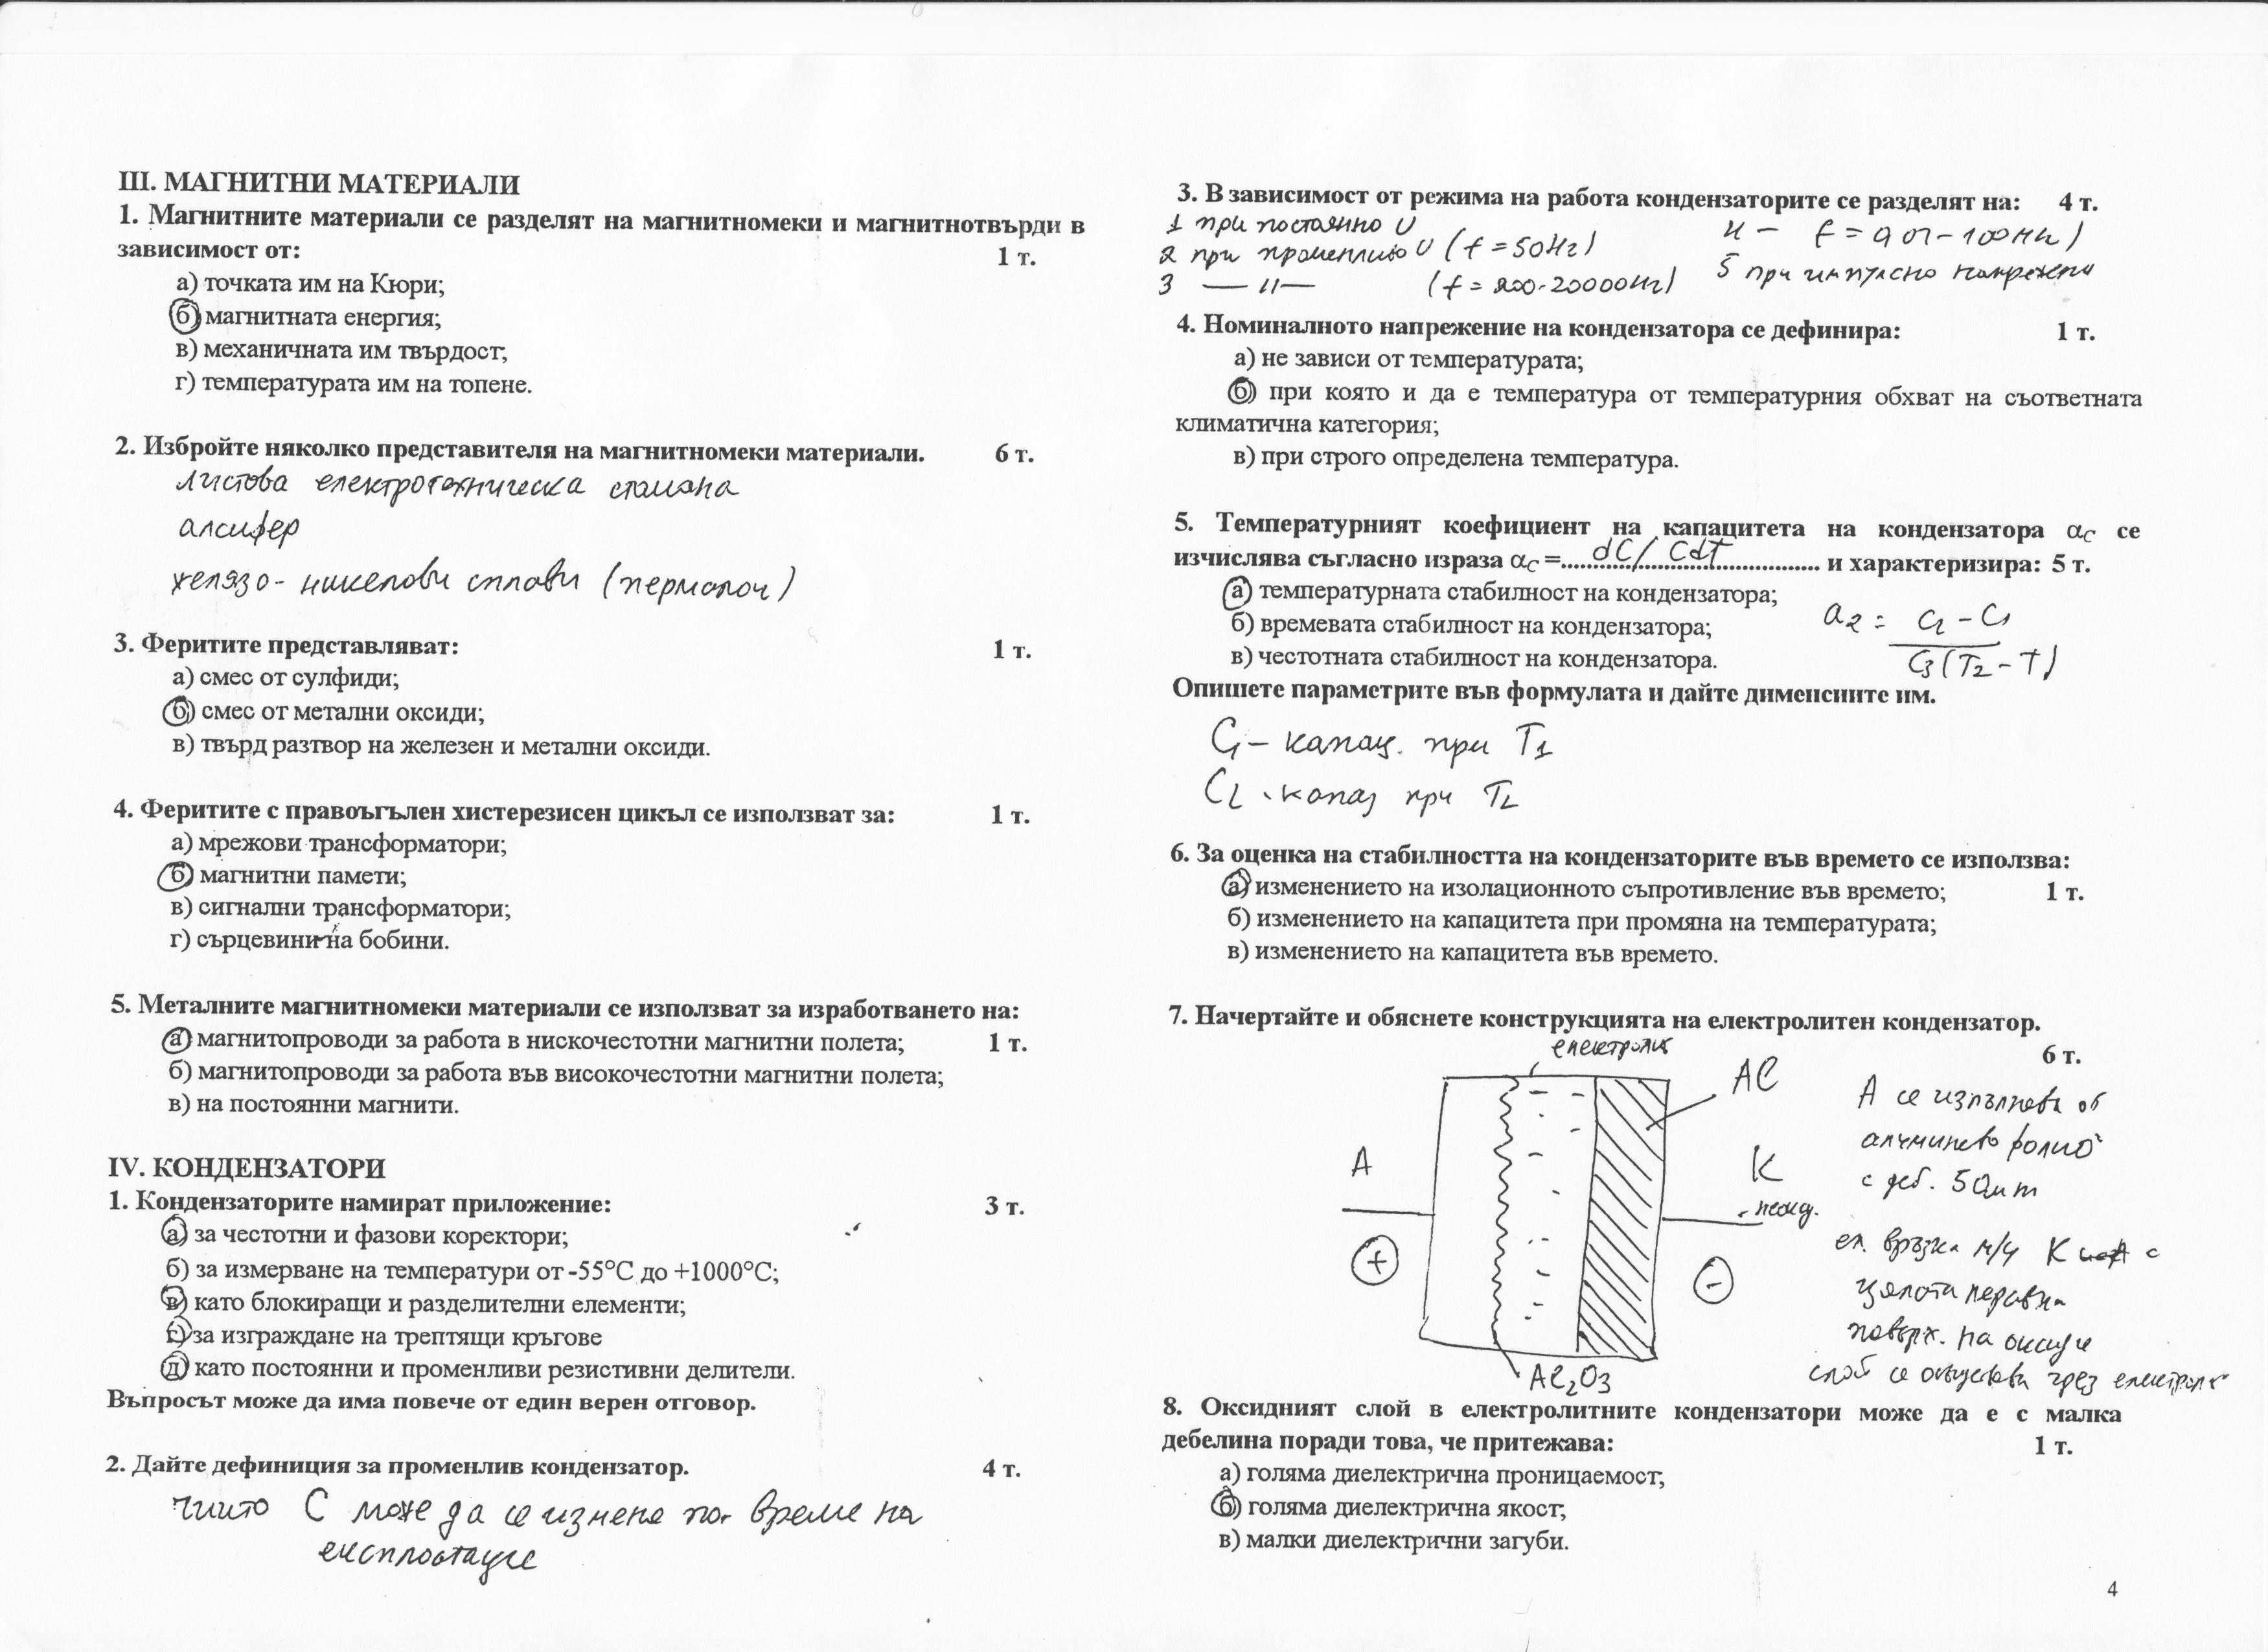 III. МАГНИТНИ МАТЕРИАЛИ
1. Магнитните материали се разделят на магнитномеки и магнитнотвърди в
зависимост от: 1 т.
а) точката им на Кюри;
б) магнитната енергия;
в) механичната им твърдост;
г) температурата им на топене.
2. Избройте няколко представителя на магнитномеки материали. 6 т.
листова електротехническа стомана
алсифер
желязо - никелови сплави (пермалой)
3. Феритите представляват: 1 т.
а) смес от сулфиди;
б) смес от метални оксиди;
в) твърд разтвор на железен и метални оксиди.
4. Феритите с правоъгълен хистерезисен цикъл се използват за: 1 т.
а) мрежови трансформатори;
б) магнитни памети;
в) сигнални трансформатори;
г) сърцевини на бобини.
5. Металните магнитномеки материали се използват за изработването на:
а) магнитопроводи за работа в нискочестотни магнитни полета; 1 т.
б) магнитопроводи за работа във високочестотни магнитни полета;
в) на постоянни магнити.
IV. КОНДЕНЗАТОРИ
1. Кондензаторите намират приложение: 3 т.
а) за честотни и фазови коректори;
б) за измерване на температури от -55°C до +1000°C;
в) като блокиращи и разделителни елементи;
г) за изграждане на трептящи кръгове
д) като постоянни и променливи резистивни делители.
Въпросът може да има повече от един верен отговор.
2. Дайте дефиниция за променлив кондензатор. 4 т.
чиито C може да се изменя по време на
експлоатация
3. В зависимост от режима на работа кондензаторите се разделят на: 4 т.
1 при постоянно U
2 при променливо U (f = 50Hz)
3 — // — (f = 200-20000Hz)
4 — f = 0,01-100MHz)
5 при импулсно напрежение
4. Номиналното напрежение на кондензатора се дефинира: 1 т.
а) не зависи от температурата;
б) при която и да е температура от температурния обхват на съответната
климатична категория;
в) при строго определена температура.
5. Температурният коефициент на капацитета на кондензатора αC се
изчислява съгласно израза αC =.....dC/Cdt..... и характеризира: 5 т.
а) температурната стабилност на кондензатора;
б) времевата стабилност на кондензатора;
в) честотната стабилност на кондензатора.
a2 = C2 - C1
C3 (T2 - T)
Опишете параметрите във формулата и дайте дименсиите им.
C1 – капац. при T1
C2 - капац при T2
6. За оценка на стабилността на кондензаторите във времето се използва:
а) изменението на изолационното съпротивление във времето; 1 т.
б) изменението на капацитета при промяна на температурата;
в) изменението на капацитета във времето.
7. Начертайте и обяснете конструкцията на електролитен кондензатор.
6 т.
електролит
Al
А
К
+
-
Al2O3
А се изпълнява от
алуминиево фолио
с деб. 50μm
ел. връзка м/у К с
цялата неравна
повърх. на оксидния
слой се осъществява чрез електролит
8. Оксидният слой в електролитните кондензатори може да е с малка
дебелина поради това, че притежава: 1 т.
а) голяма диелектрична проницаемост;
б) голяма диелектрична якост;
в) малки диелектрични загуби.
4